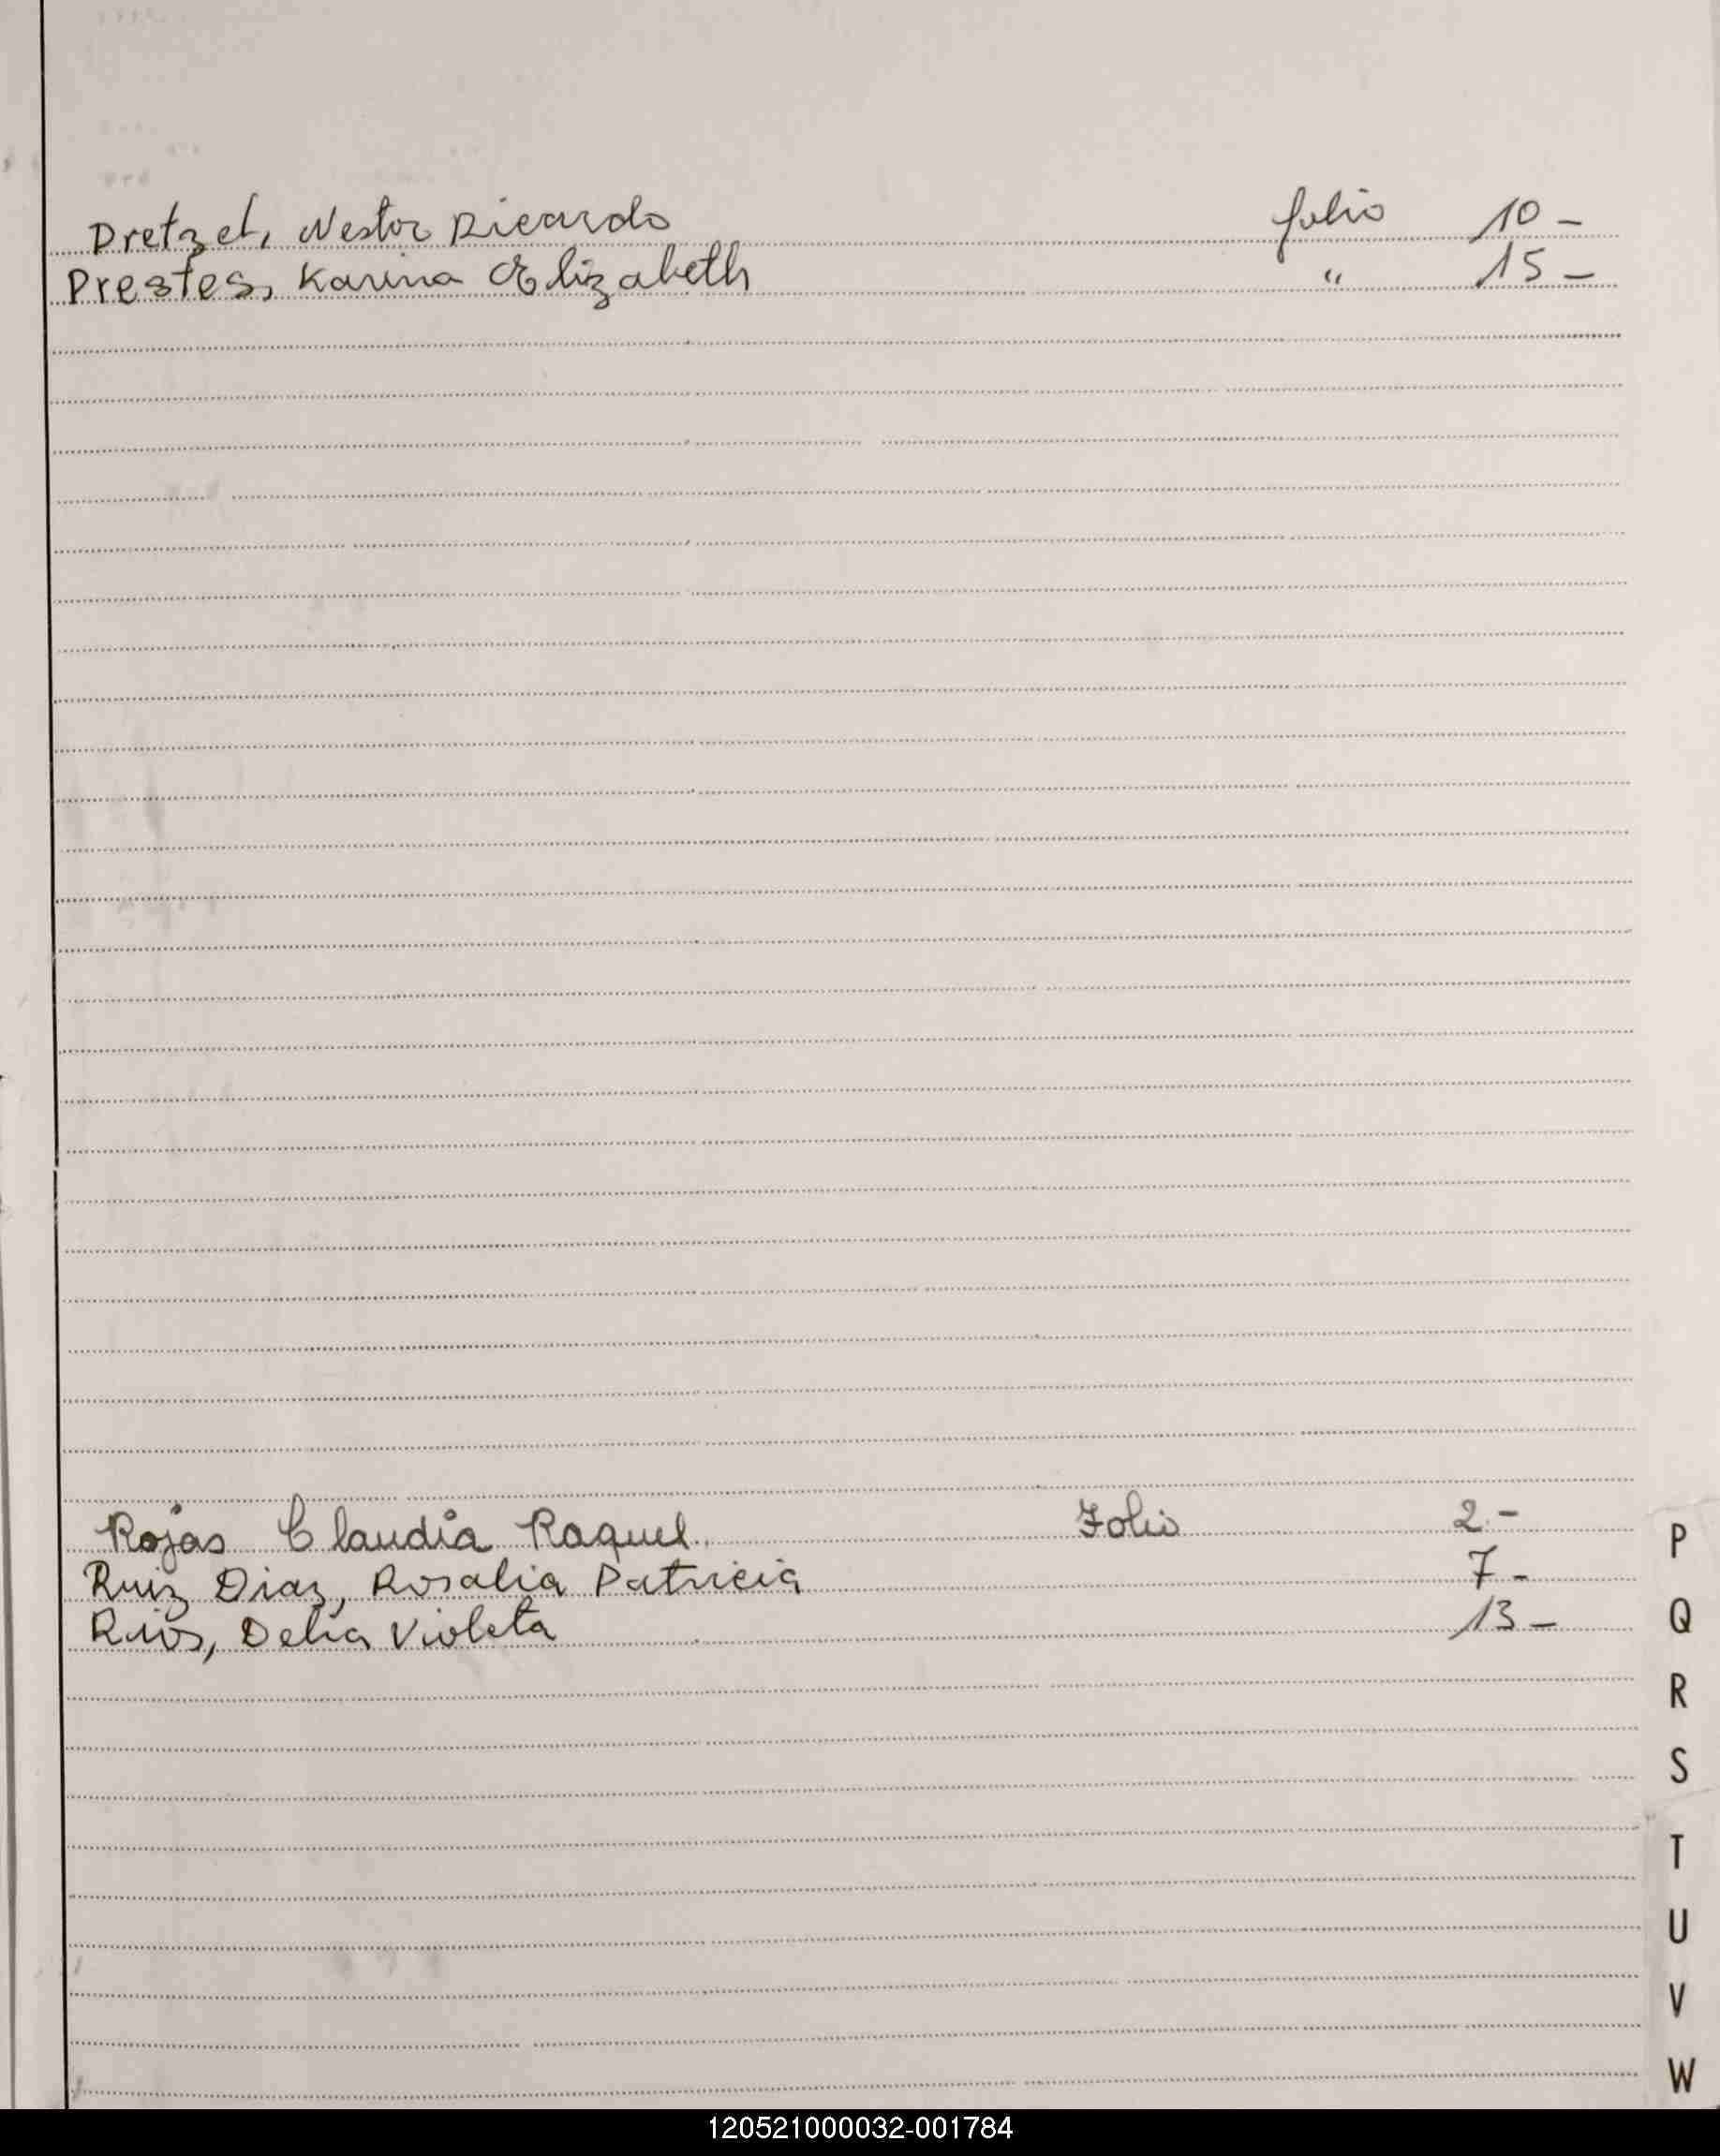 Pretzel, Nestor Ricardo folio 10-
Prestes, Karina Elizabeth " 15-
Rojas Claudia Raquel. Folio 2-
Ruiz Diaz, Rosalia Patricia 7-
Rios, Delia Violeta 13-
P
Q
R
S
T
U
V
W
120521000032-001784